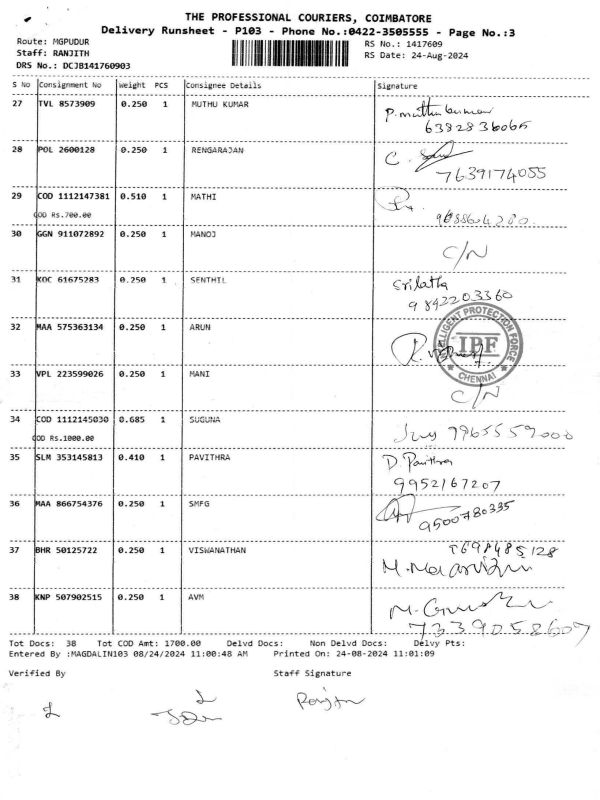 THE PROFESSIONAL COURIERS, COIMBATORE
Delivery Runsheet - P103 - Phone No.:0422-3505555 - Page No.:3
Route: MGPUDUR
RS No.: 1417609
Staff: RANJITH
RS Date: 24-Aug-2024
DRS No.: DCJB141760903
S No Consignment No Weight PCS Consignee Details Signature
27 TVL 8573909 0.250 1 MUTHU KUMAR P. muthukumar
6382836065
28 POL 2600128 0.250 1 RENGARAJAN C.
7639174055
29 COD 1112147381 0.510 1 MATHI
COD Rs.700.00
30 GGN 911072892 0.250 1 MANOJ C/N
31 KOC 61675283 0.250 1 SENTHIL Srilatha
9842203360
32 MAA 575363134 0.250 1 ARUN
INTELLIGENT PROTECTION FORCE
IPF
CHENNAI
33 VPL 223599026 0.250 1 MANI C/N
34 COD 1112145030 0.685 1 SUGUNA 9965559000
COD Rs.1000.00
35 SLM 353145813 0.410 1 PAVITHRA D. Pavithra
9952167207
36 MAA 866754376 0.250 1 SMFG
9500780335
37 BHR 50125722 0.250 1 VISWANATHAN 8698485128
38 KNP 507902515 0.250 1 AVM
7339058609
Tot Docs: 38 Tot COD Amt: 1700.00 Delvd Docs: Non Delvd Docs: Delvy Pts:
Entered By :MAGDALIN103 08/24/2024 11:00:48 AM Printed On: 24-08-2024 11:01:09
Verified By Staff Signature